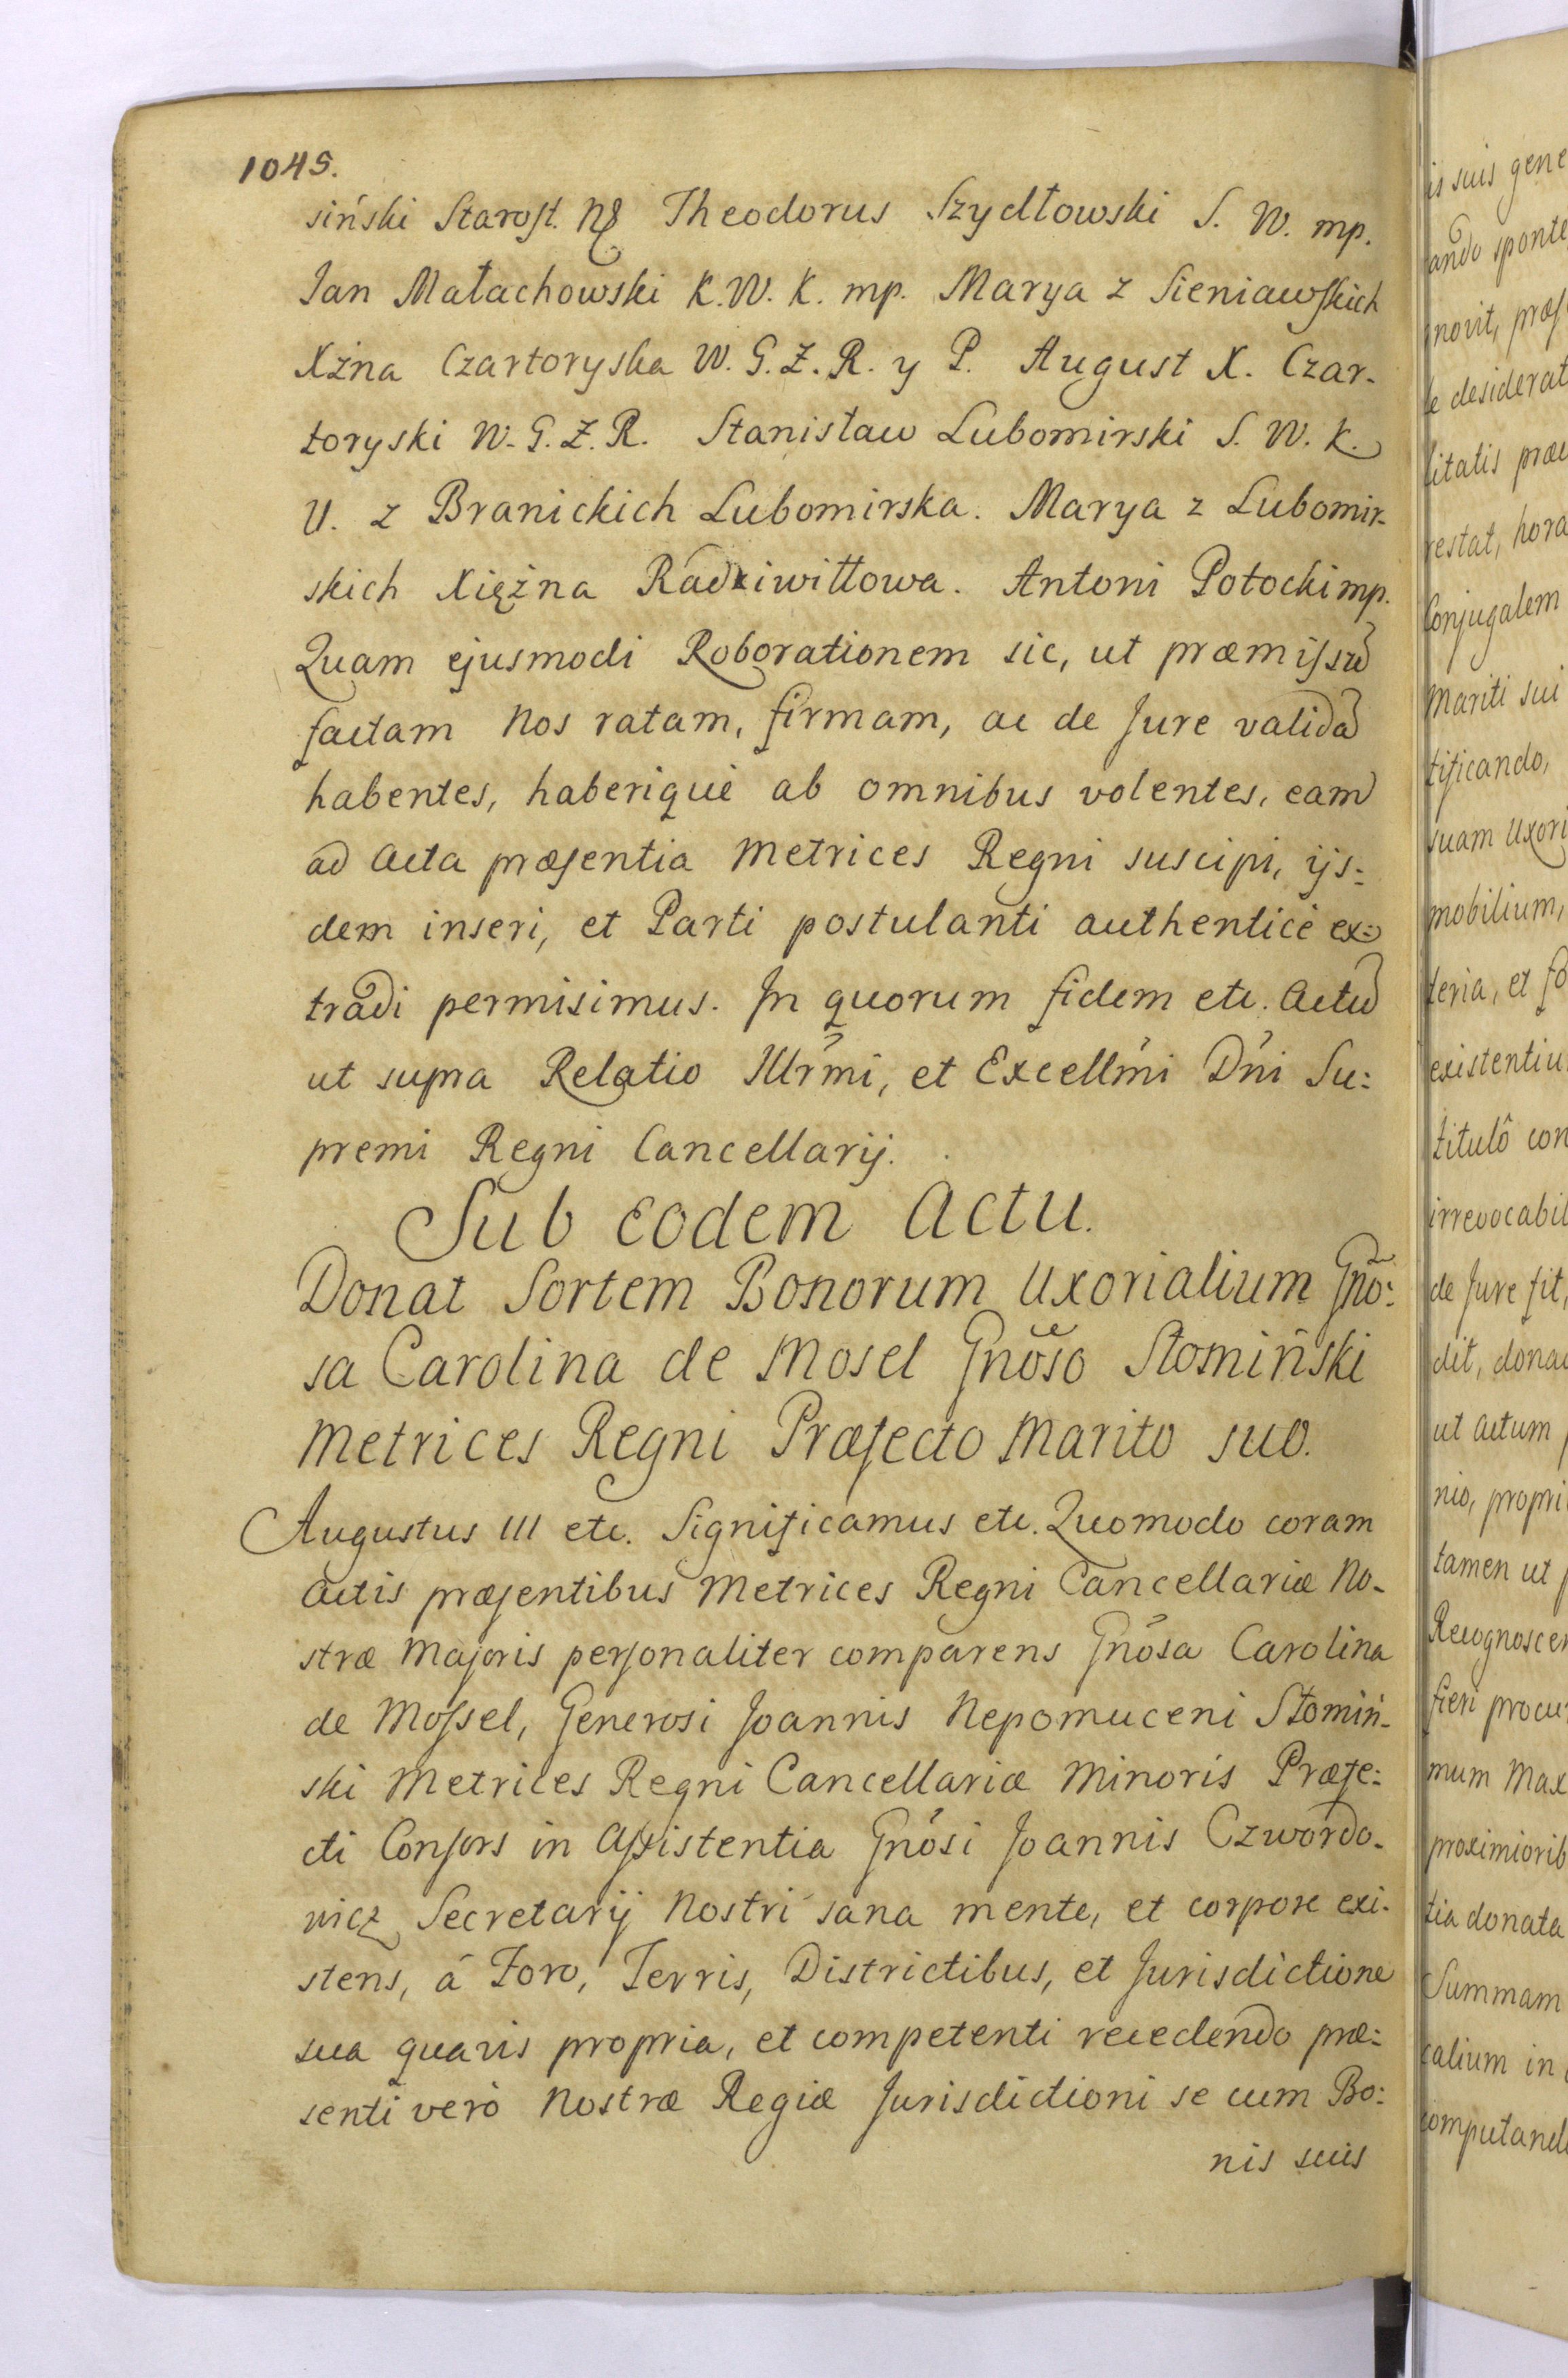 1045.
siński Starost. Theodorus Szydłowski S. W. mp.
Jan Małachowski K. W. K. mp. Marya z Sieniawskich
Xżna Czartoryska W. G. Z. R. y P. August X. Czar-
toryski W. G. Z. R. Stanisław Lubomirski S. W. K.
U. z Branickich Lubomirska. Marya z Lubomir-
skich Xiężna Radziwiłłowa. Antoni Potocki mp.
Quam ejusmodi Roborationem sic, ut præmissũ
factam Nos ratam, firmam, ac de Jure validã
habentes, haberique ab omnibus volentes, eam
ad Acta præsentia Metrices Regni suscipi, ijs:
dem inseri, et Parti postulanti authenticè ex:
tradi permisimus. In quorum fidem etc. Actũ
ut supra Relatio Illr̃mi, et Excellm̃i Dñi Su:
premi Regni Cancellarij.
Sub eodem Actu.
Donat Sortem Bonorum Uxorialium Gño:
sa Carolina de Mosel Gñoso Słomiński
Metrices Regni Præfecto Marito suo.
Augustus III etc. Significamus etc. Quomodo coram
Actis præsentibus Metrices Regni Cancellariæ No-
stræ Majoris personaliter comparens Gñosa Carolina
de Mossel, Generosi Joannis Nepomuceni Słomiń-
ski Metrices Regni Cancellariæ Minoris Præfe:
cti Consors in Assistentia Gñosi Joannis Czwordo-
wicz Secretarij Nostri sana mente, et corpore exi-
stens, á Foro, Terris, Districtibus, et Jurisdictione
sua quavis propria, et competenti recedendo præ:
senti verò Nostræ Regiæ Jurisdictioni se cum Bo:
nis suis
is suis gene
ando sponte
gnovit, præs
le desiderat
litatis præ
restat, hora
Conjugalem
Mariti sui
tificando,
suam Uxori
mobilium,
teria, et fo
existentiu
titulô con
irrevocabil
de Jure fit,
dit, dona
ut Actum
nio, propri
tamen ut
Recognoscen
fieri procu
mum Max
proximiorib
tia donata
Summam
calium in
computand